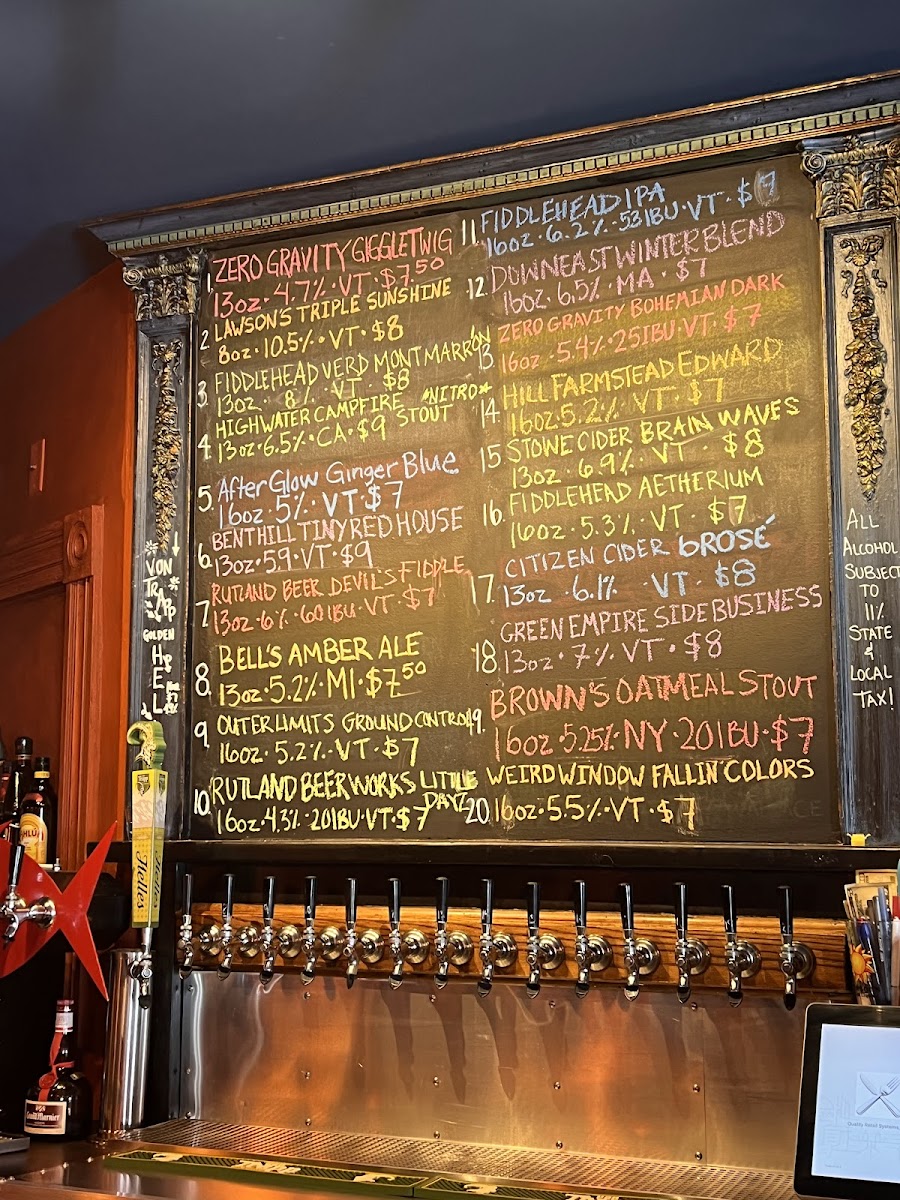 1. ZERO GRAVITY GIGGLETWIG
13oz · 4.7% · VT · $7.50
2. LAWSON'S TRIPLE SUNSHINE
8oz · 10.5% · VT · $8
3. FIDDLEHEAD VERD MONT MARRON
13oz · 8% · VT · $8
4. HIGHWATER CAMPFIRE STOUT *NITRO*
13oz · 6.5% · CA · $9
5. AfterGlow Ginger Blue
16oz · 5% · VT · $7
6. BENTHILL TINY RED HOUSE
13oz · 5.9 · VT · $9
7. RUTLAND BEER DEVIL'S FIDDLE
13oz · 6% · 60IBU · VT · $7
8. BELL'S AMBER ALE
13oz · 5.2% · MI · $7.50
9. OUTER LIMITS GROUND CONTROL
16oz · 5.2% · VT · $7
10. RUTLAND BEER WORKS LITTLE DAYZ
16oz · 4.3% · 20IBU · VT · $7
11. FIDDLEHEAD IPA
16oz · 6.2% · 53IBU · VT · $7
12. DOWNEAST WINTER BLEND
16oz · 6.5% · MA · $7
13. ZERO GRAVITY BOHEMIAN DARK
16oz · 5.4% · 25IBU · VT · $7
14. HILL FARMSTEAD EDWARD
16oz · 5.2% · VT · $7
15 STOWE CIDER BRAIN WAVES
13oz · 6.9% · VT · $8
16. FIDDLEHEAD AETHERIUM
16oz · 5.3% · VT · $7
17. CITIZEN CIDER bROSÉ
13oz · 6.1% VT · $8
18. GREEN EMPIRE SIDE BUSINESS
13oz · 7% · VT · $8
19. BROWN'S OATMEAL STOUT
16oz 5.25% NY · 20IBU · $7
20. WEIRD WINDOW FALLIN' COLORS
16oz · 5.5% · VT · $7
VON
TRAPP
GOLDEN
HELL
ALL
ALCOHOL
SUBJECT
TO
11%
STATE
&
LOCAL
TAX!
Helles